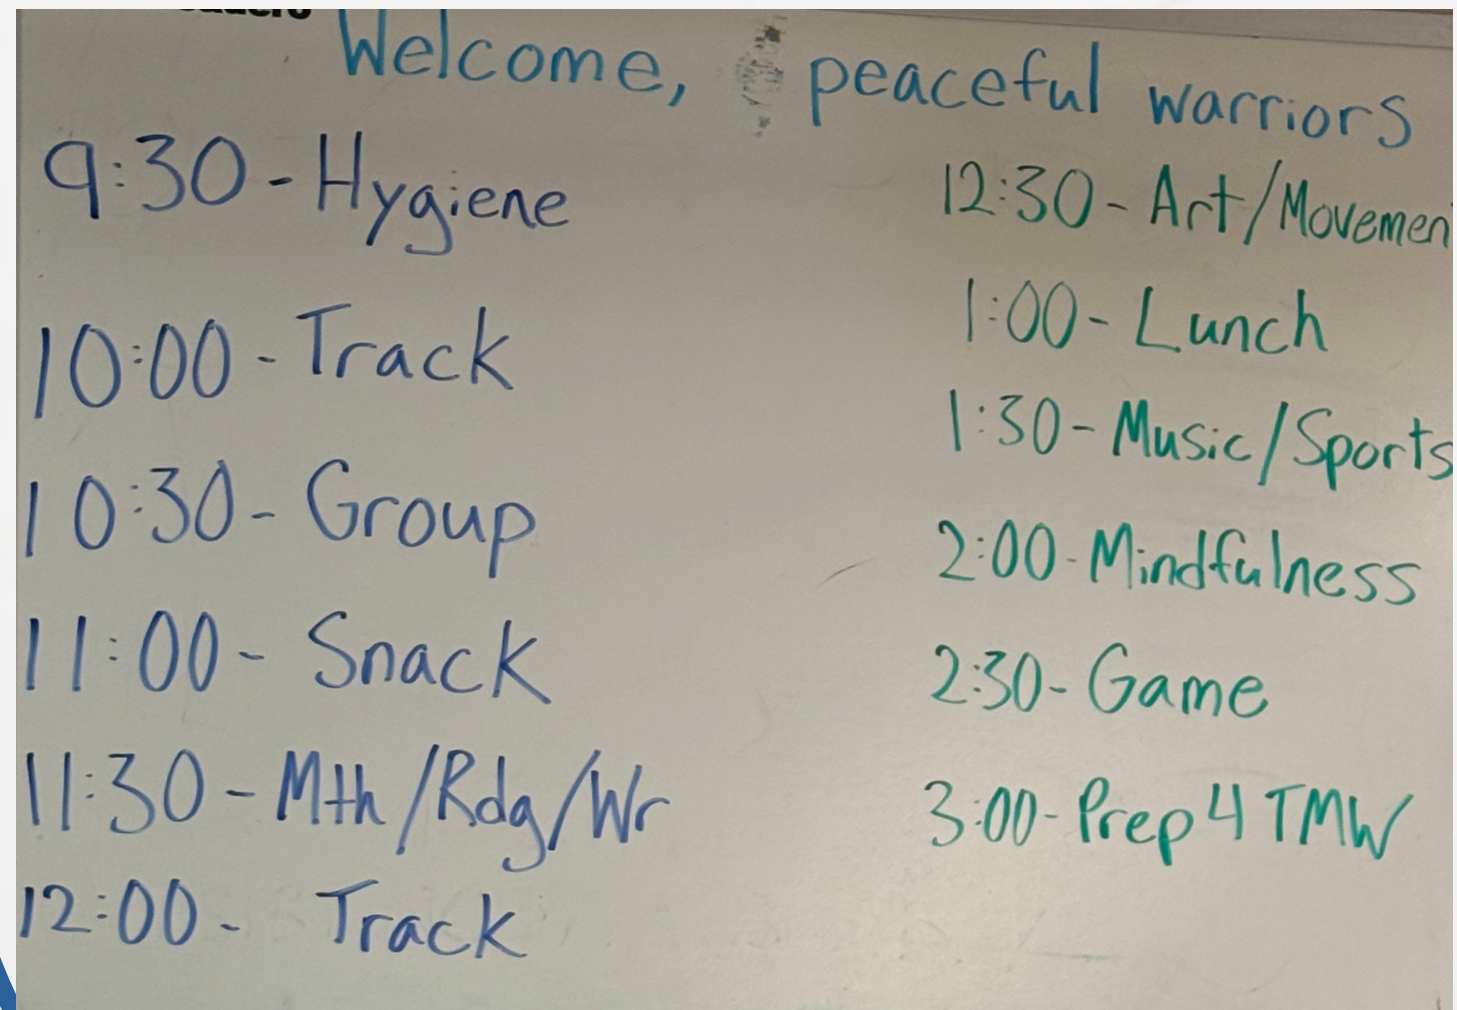 Welcome, peaceful warriors
9:30 - Hygiene
10:00 - Track
10:30 - Group
11:00 - Snack
11:30 - Mth/Rdg/Wr
12:00 - Track
12:30 - Art/Movemen
1:00 - Lunch
1:30 - Music/Sports
2:00 - Mindfulness
2:30 - Game
3:00 - Prep 4 TMW